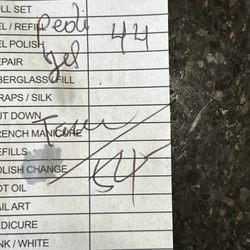 LL SET
EL / REFIL Pedi 44
EL POLISH Gel
EPAIR
BERGLASS / FILL
RAPS / SILK
UT DOWN
RENCH MANICURE
EFILLS
OLISH CHANGE 54
OT OIL
AIL ART
EDICURE
NK / WHITE